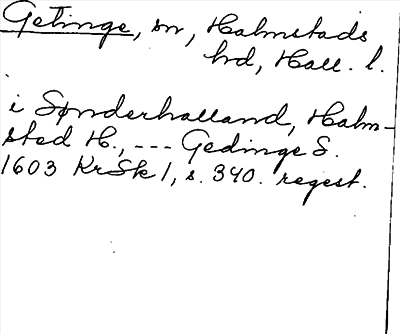 Getinge, sn, Halmstads
hd, Hall. l.
i Sønderhalland, Halm-
sted H., --- Gedinge S.
1603 KrSk 1, s. 340. regest.